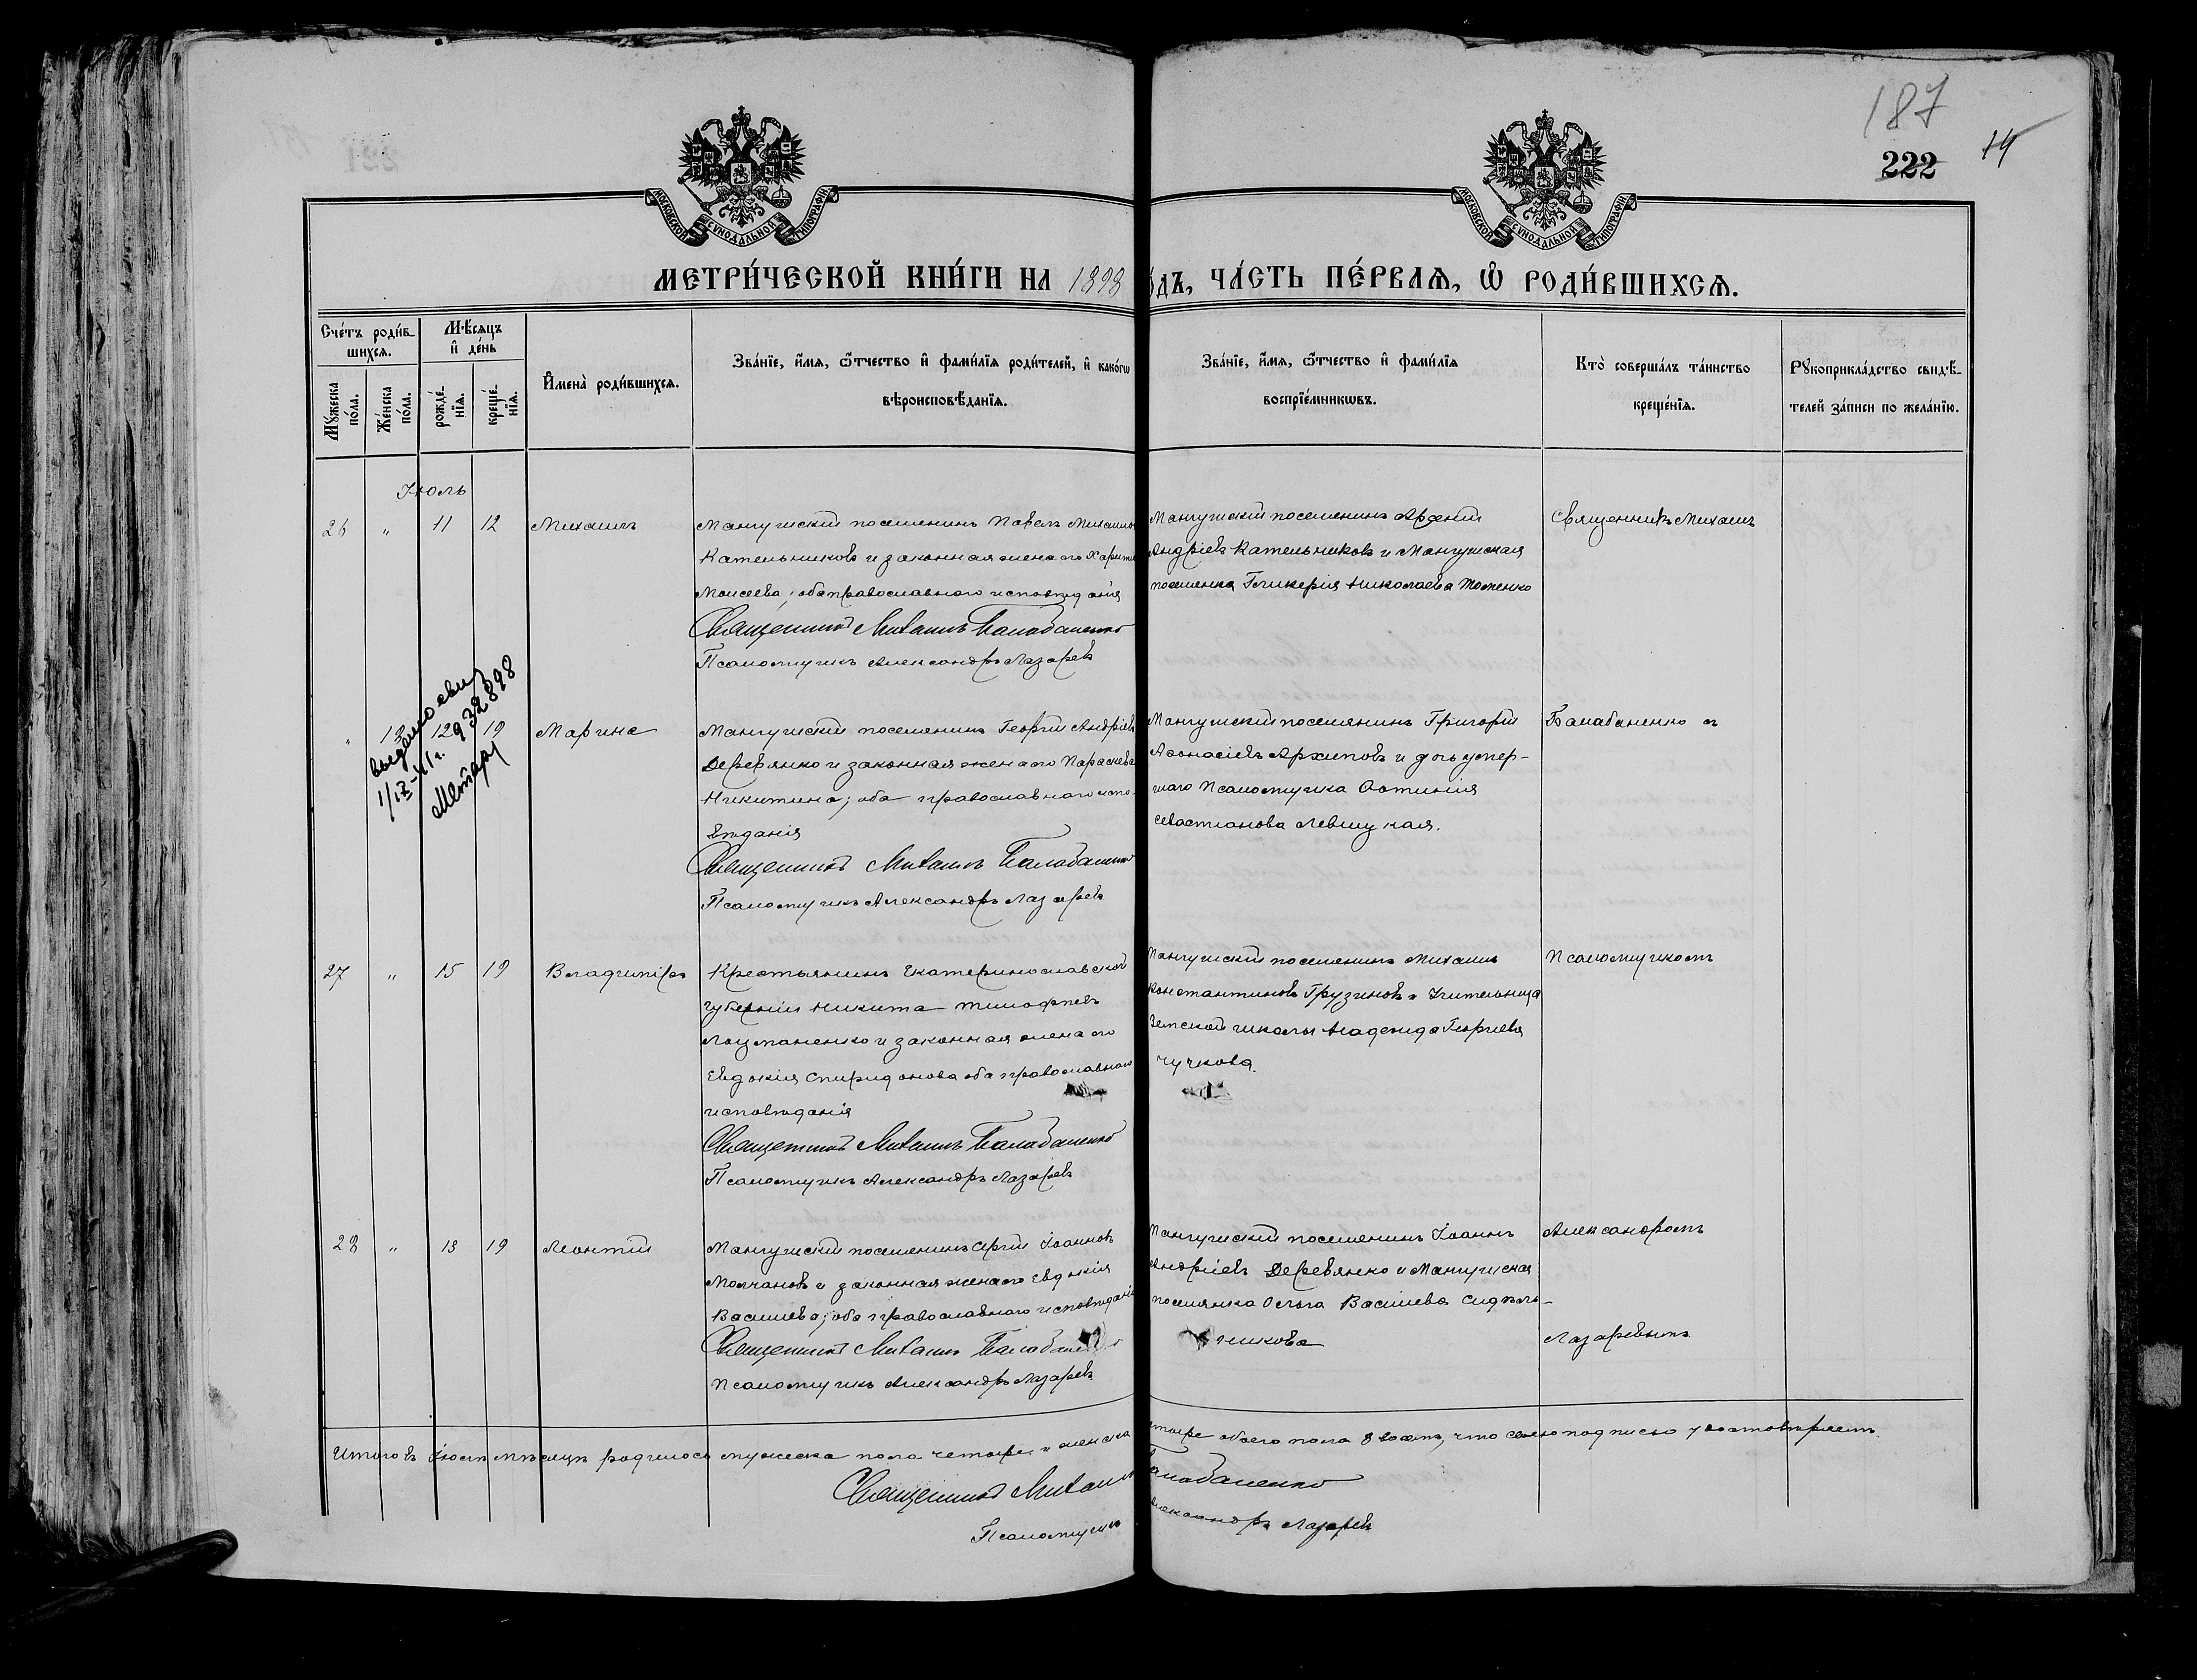 187
222
14
МОСКОВСКОЙ СѴНОДАЛЬНОЙ ТИПОГРАФІИ
МОСКОВСКОЙ СѴНОДАЛЬНОЙ ТИПОГРАФІИ
МЕТРИ́ЧЕСКОЙ КНИ́ГИ НА 1898
ДЪ, ЧА́СТЬ ПЕ́РВАѦ, Ѡ҆ РОДИ́ВШИХСѦ.
Сче́тъ роди́в-
шихсѧ.
Мѣ́сѧцъ
и҆ де́нь
Мꙋ́жеска
по́ла.
Же́нска
по́ла.
рожде́-
нїѧ.
креще́-
нїѧ.
И҆мена̀ роди́вшихсѧ.
Зва́нїе, и҆́мѧ, ѻ҆́тчество и҆ фами́лїѧ роди́телей, и҆ како́гѡ
вѣроисповѣ́данїѧ.
Зва́нїе, и҆́мѧ, ѻ҆́тчество и҆ фами́лїѧ
воспрїе́мникѡвъ.
Кто̀ соверша́лъ та́инство
креще́нїѧ.
Рꙋкоприкла́дство свидѣ́-
телей за́писи по жела́нїю.
Іюль
26 " 11 12 Михаилъ
Мангушскій поселенинъ Павелъ Михаилов
Кательниковъ и законная жена его Харити
Моисеева; оба православного исповѣданія
Священникъ Михаилъ Балабаненко
Псаломщикъ Александръ Лазаревъ
Мангушскій поселенинъ Арсеній
Андріевъ Кательниковъ и Мангушская
поселянка Гликерія Николаева Томенко
Священникъ Михаилъ
" 12 19 Марина
выдано свид
1/IX-41г. 932898
Мангушскій поселенинъ Георгій Андріевъ
Деревянко и законная жена его Параскева
Никитина; оба православного испо-
вѣданія
Священникъ Михаилъ Балабаненко
Псаломщикъ Александръ Лазаревъ
Мангушскій поселянинъ Григорій
Аѳонасіевъ Архиповъ и дочь умер-
шаго Псаломщика Фотинія
Севастіанова Левицкая.
Балабаненко съ
27 " 15 19 Владиміръ
Крестьянинъ Екатеринославской
губерніи Никита Тимофѣевъ
Лоцманенко и законная жена его
Евдокія Спиридонова оба православного
исповѣданія
Священникъ Михаилъ Балабаненко
Псаломщикъ Александръ Лазаревъ
Мангушскій поселенинъ Михаилъ
Константиновъ Грузиновъ и Учительница
Земской школы Надежда Георгіева
Чучкова.
Псаломщикомъ
28 " 18 19 Леонтій
Мангушскій поселенинъ Сергій Іоанновъ
Молчановъ и законная жена его Евдокія
Василиева; оба православного исповѣданія
Священникъ Михаилъ Балабаненко
Псаломщикъ Александръ Лазаревъ
Мангушскій поселенинъ Іоаннъ
Андріевъ Деревянко и Мангушская
поселянка Ольга Василиева Сидѣль-
никова
Александромъ
Лазаревымъ
Итого въ Іюлѣ мѣсяцѣ родилось мужеска пола четыре и женска
тыре обоего пола 8 восемь, что своею подписью удостовѣряемъ.
Священникъ Михаилъ
Балабаненко
Псаломщикъ
Александръ Лазаревъ